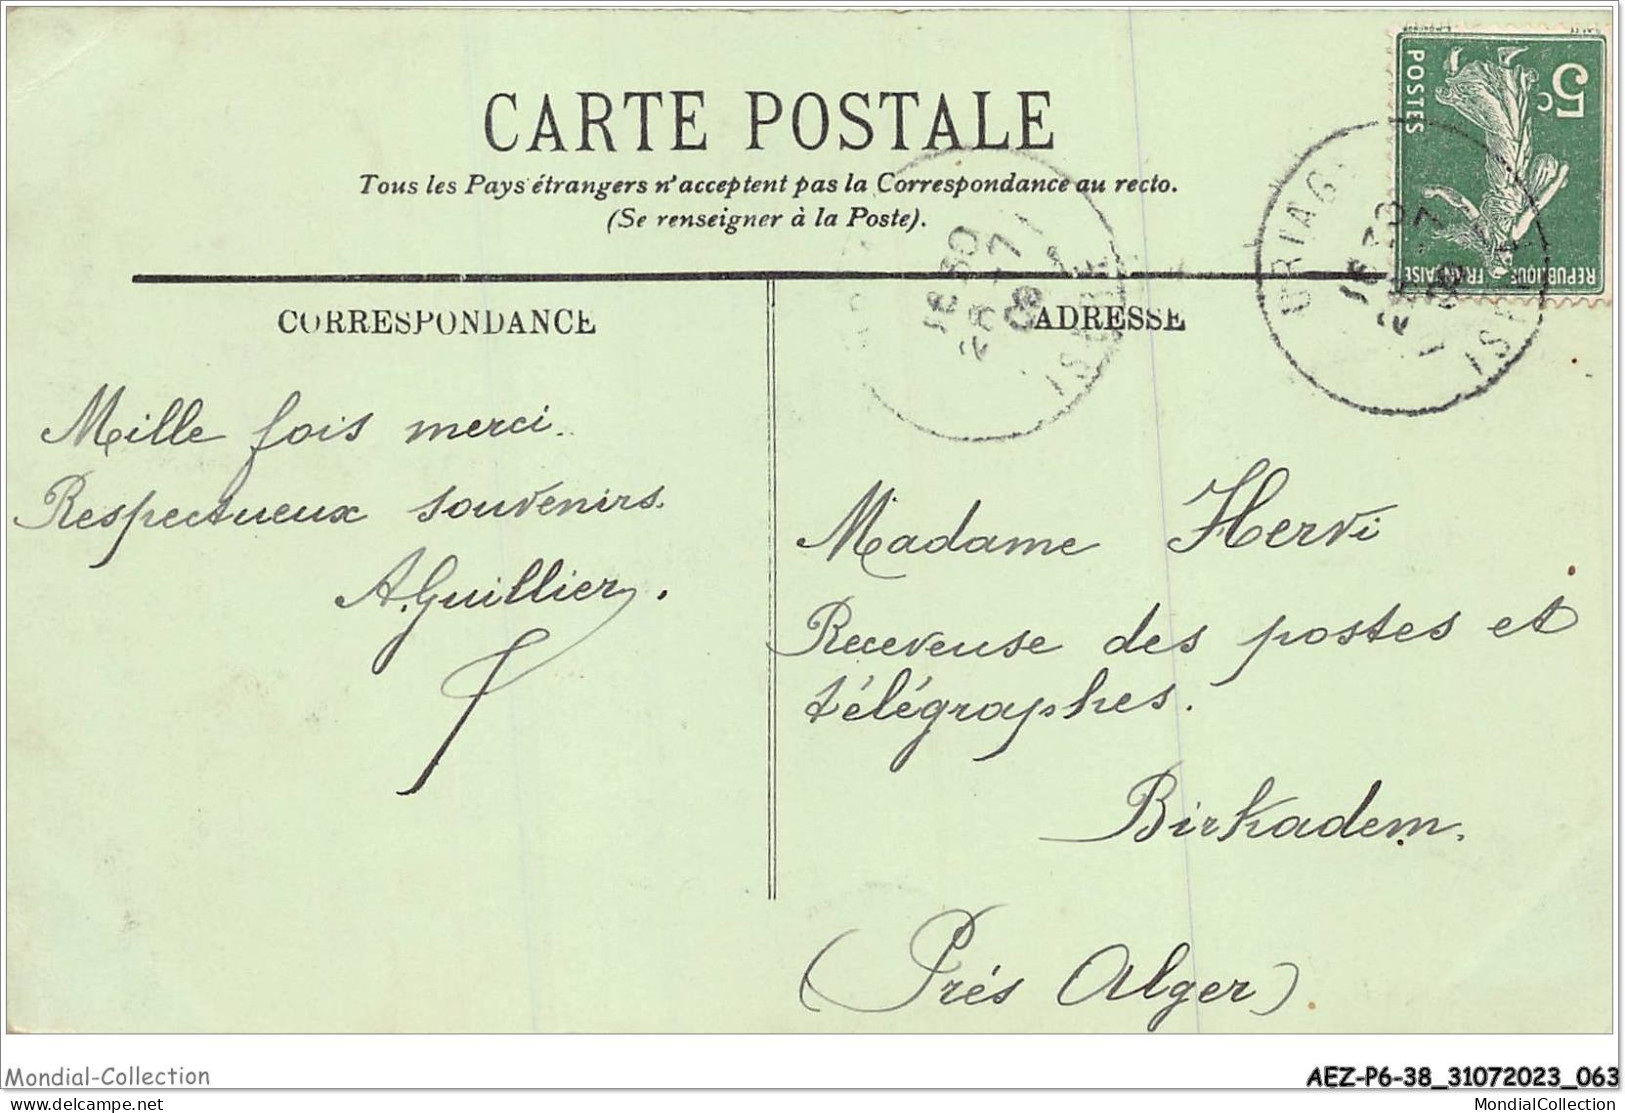 CARTE POSTALE
Tous les Pays étrangers n'acceptent pas la Correspondance au recto.
(Se renseigner à la Poste).
5c
POSTES
REPUBLIQUE FRANÇAISE
URIAGE
16 30
08
ISÈRE
16 30
ISÈRE
CORRESPONDANCE
ADRESSE
Mille fois merci.
Respectueux souvenirs.
A. Guillier.
Madame Hervi
Receveuse des postes et
télégraphes.
Birkadem.
(Prés Alger)
Mondial-Collection
AEZ-P6-38_31072023_063
mondial-collection
MondialCollection